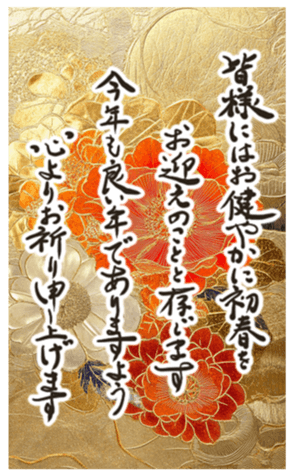 皆様にはお健やかに初春を
お迎えのことと存じます
今年も良い年でありますよう
心よりお祈り申し上げます